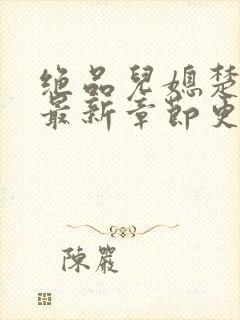 绝品儿媳楚
最新章节更
陳嚴